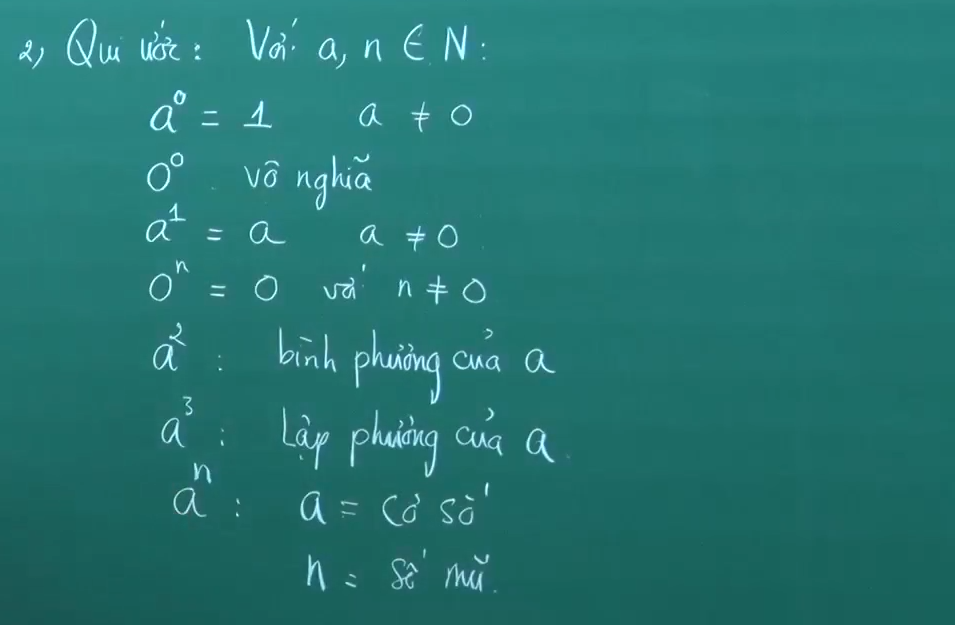 2, Qui ước: Với a, n ∈ N:
a⁰ = 1 a ≠ 0
0⁰ vô nghĩa
a¹ = a a ≠ 0
0ⁿ = 0 với n ≠ 0
a² : bình phương của a
a³ : Lập phương của a.
aⁿ : a = cơ số
n = số mũ.